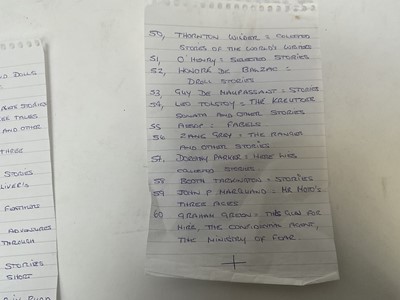 50, THORNTON WILDER = COLLECTED
STORIES OF THE WORLD'S WRITERS
51, O HENRY = SELECTED STORIES
52, HONORÉ DE BALZAC =
DROLL STORIES
53 GUY DE MAUPASSANT = STORIES
54, LEO TOLSTOY = THE KREUTZER
SONATA AND OTHER STORIES
55 AESOP = FABELS
56 ZANE GREY = THE RANGER
AND OTHER STORIES
57, DOROTHY PARKER = HERE LIES
COLLECTED STORIES
58 BOOTH TARKINGTON = STORIES
59 JOHN P MARQUAND = MR MOTO'S
THREE ACES
60 GRAHAM GREEN = THIS GUN FOR
HIRE, THE CONFIDENTIAL AGENT,
THE MINISTRY OF FEAR.
STORIES
TALES
AND OTHER
THREE
STORIES
ADVENTURES
THROUGH
STORIES
SHORT